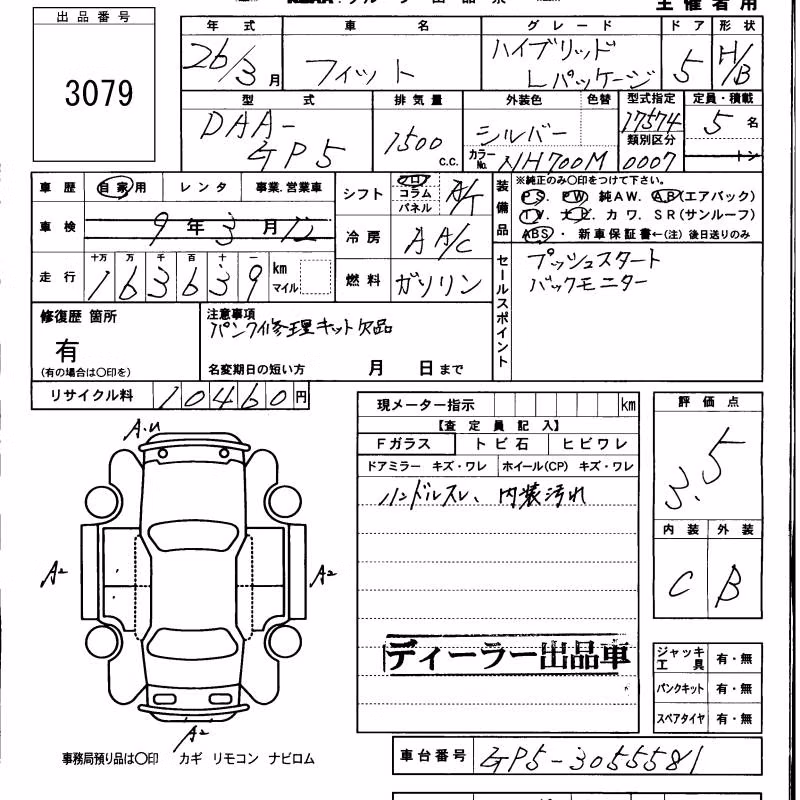 主催者用
出品番号
3079
年式 車名 グレード ドア 形状
26/3月 フィット ハイブリッド
Lパッケージ 5 H/B
型式 排気量 外装色 色替 型式指定 定員・積載
DAA-
GP5 1500 c.c. シルバー 17574 5名
カラーNo. NH700M 類別区分 0007 トン
車歴 自家用 レンタ 事業.営業車
車検 9年3月12
走行 十万 万 千 百 十 一
163639 km マイル
シフト フロ コラム パネル A/T
冷房 AA/C
燃料 ガソリン
装備品 ※純正のみ○印をつけて下さい。
PS. PW 純AW. AB(エアバック)
TV. ナビ カワ. SR(サンルーフ)
ABS・新車保証書←(注)後日送りのみ
セールスポイント
プッシュスタート
バックモニター
修復歴 箇所
有
(有の場合は○印を)
注意事項
パンク修理キット欠品
名変期日の短い方 月 日まで
リサイクル料 10460円
A.U
A2
A2
A2
事務局預り品は○印 カギ リモコン ナビロム
現メーター指示 km
【査定員記入】
Fガラス トビ石 ヒビワレ
ドアミラー キズ・ワレ ホイール(CP) キズ・ワレ
ハンドルスレ、内装汚れ
ディーラー出品車
評価点
3.5
内装 外装
C B
ジャッキ工具 有・無
パンクキット 有・無
スペアタイヤ 有・無
車台番号 GP5-3055581